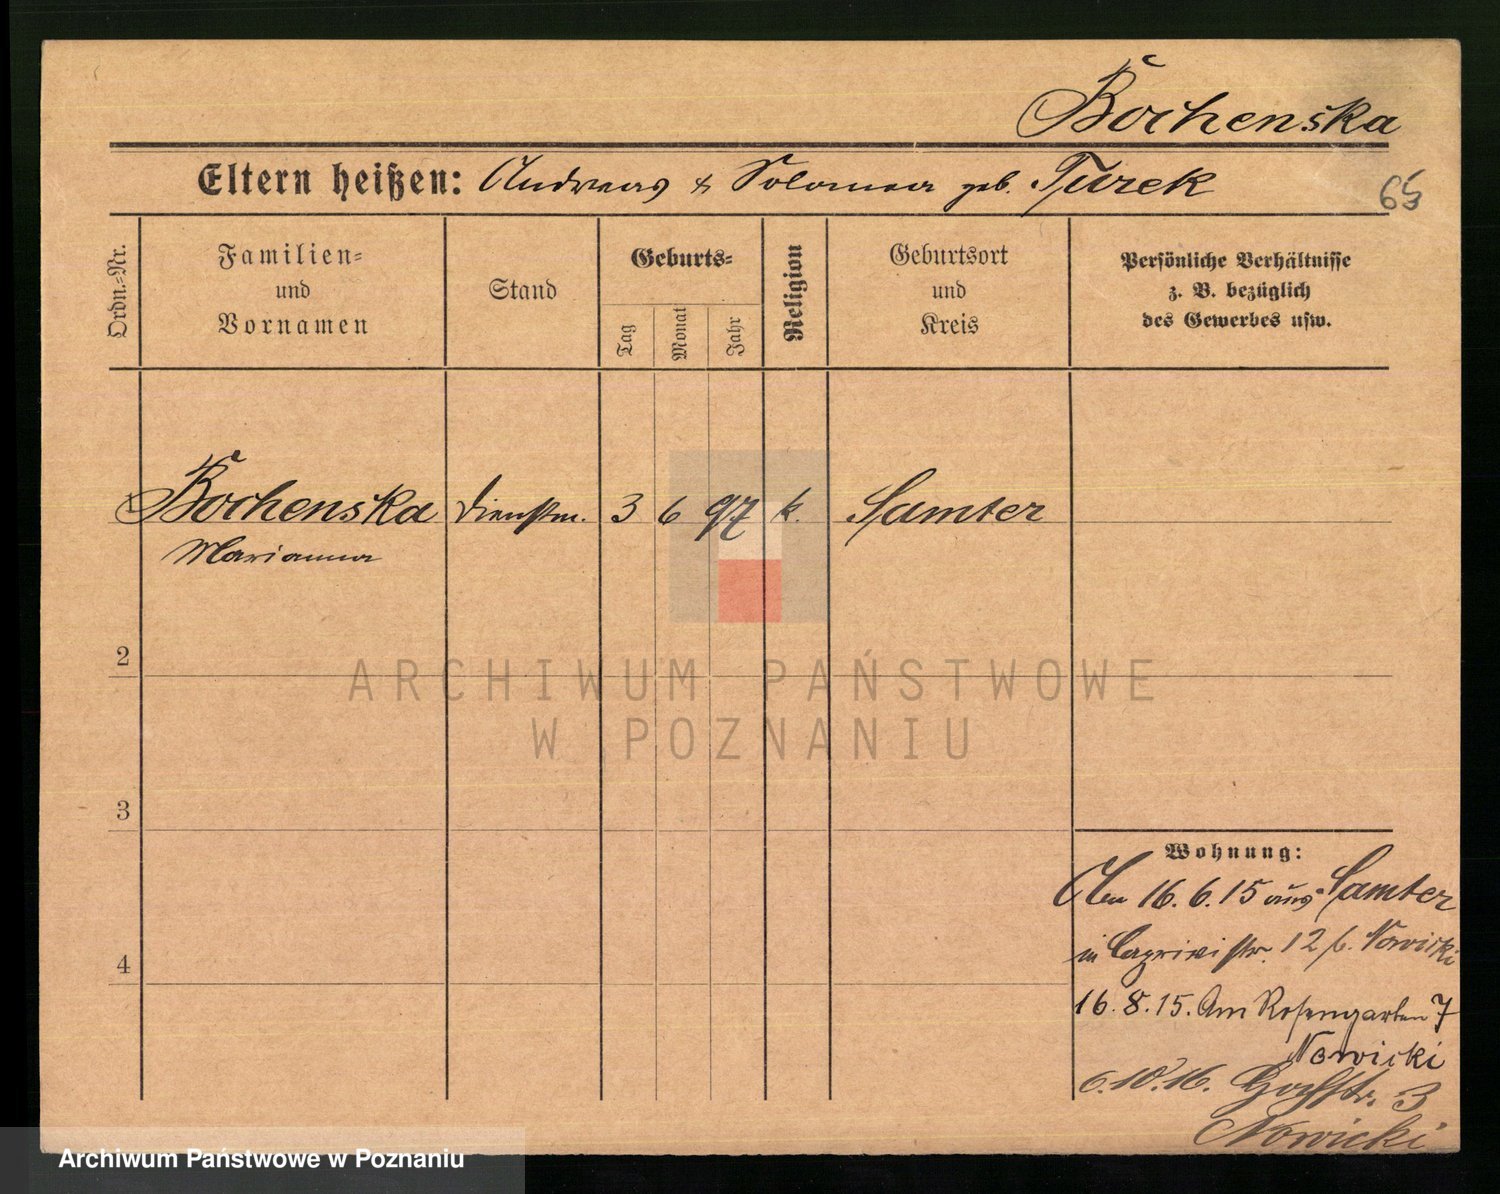 Bochenska
Eltern heißen: Andreas & Salomea geb. Turek
65
Ordn.=Nr.
Familien=
und
Vornamen
Stand
Geburts=
Tag
Monat
Jahr
Religion
Geburtsort
und
Kreis
Persönliche Verhältnisse
z. B. bezüglich
des Gewerbes usw.
1 Bochenska Dienstm. 3 6 97 k. Samter
Marianna
2
3
4
Wohnung:
Am 16. 6. 15 aus Samter
in Caprivistr. 12 b. Nowicki
16. 8. 15. Am Rosengarten 7
Nowicki
6. 10. 16. 3
Nowicki
ARCHIWUM PAŃSTWOWE
W POZNANIU
Archiwum Państwowe w Poznaniu